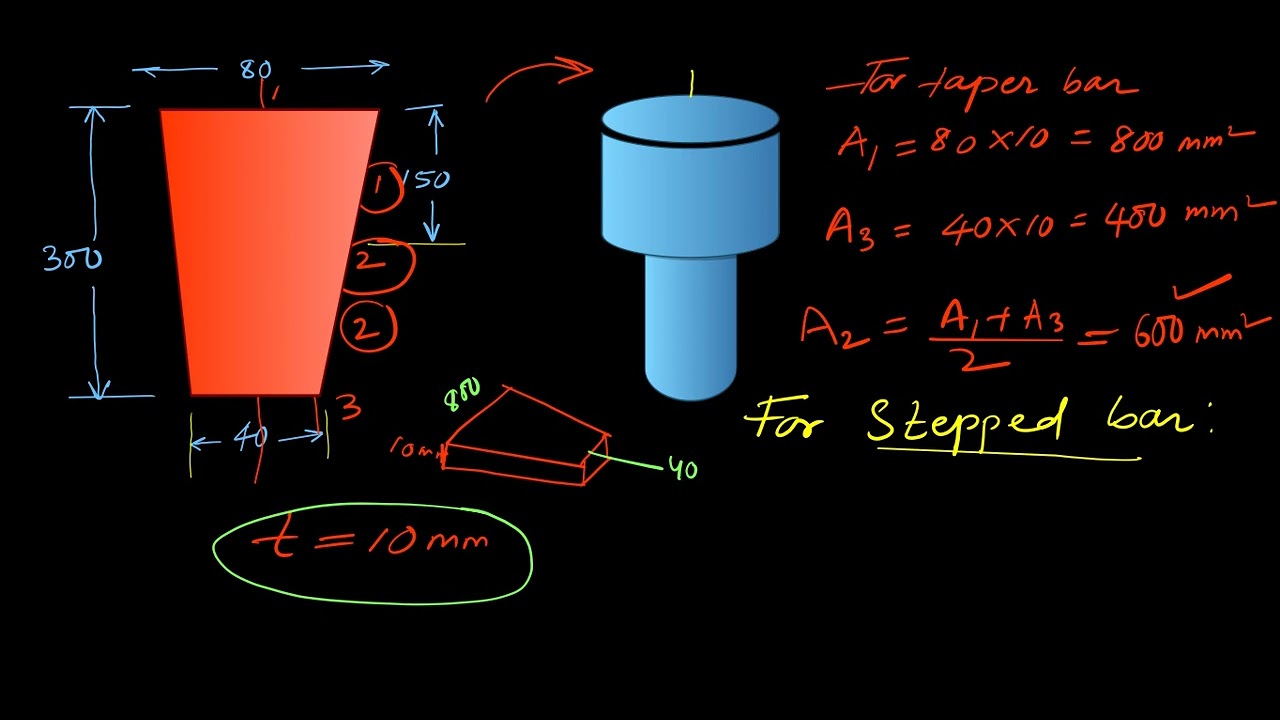 80
1
300
1
150
2
2
3
40
t = 10 mm
800
10mm
40
For taper bar
A₁ = 80×10 = 800 mm²
A₃ = 40×10 = 400 mm²
A₂ = A₁+A₃ / 2 = 600 mm²
For Stepped bar: